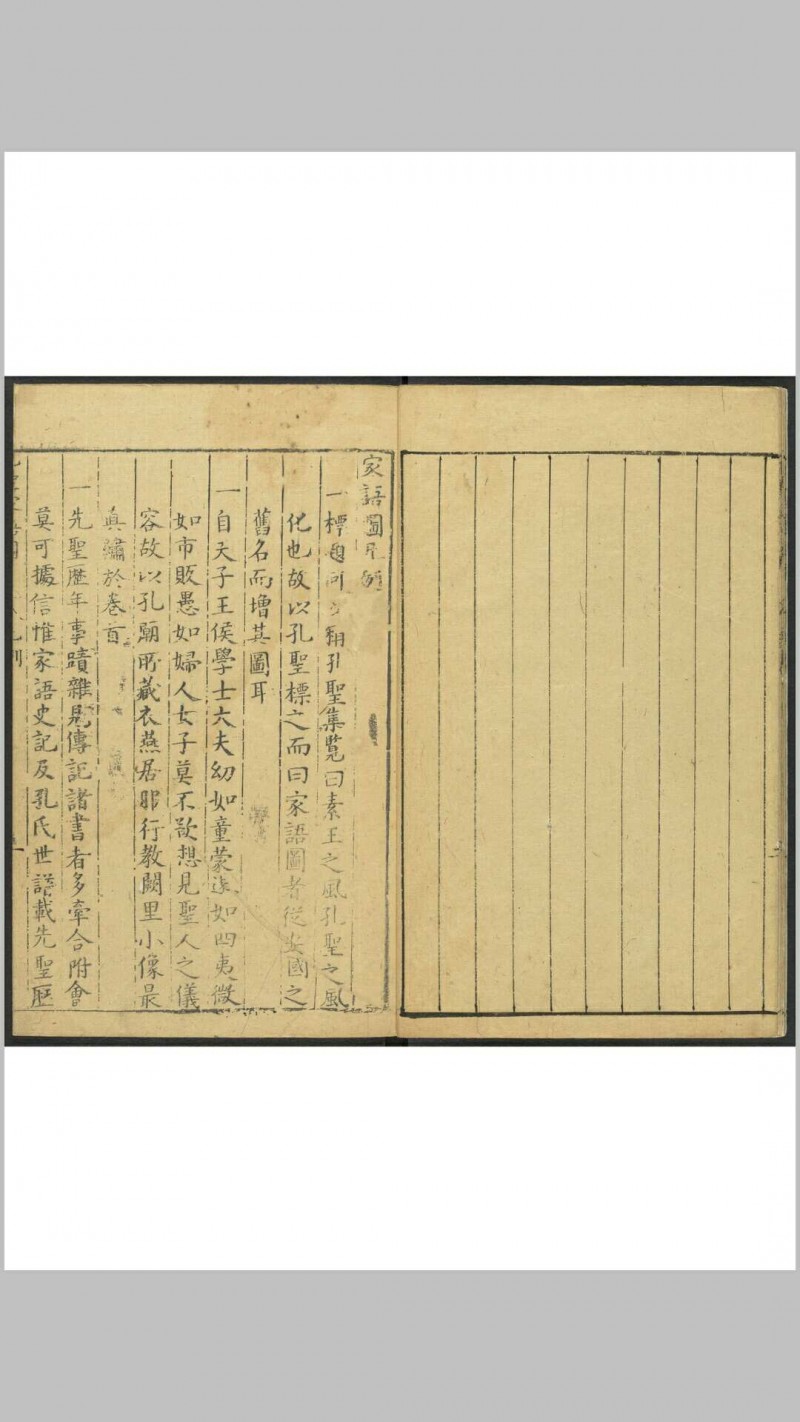 家語圖凡例
一標題何言乎孔聖集覽曰素王之風孔聖之風
化也故以孔聖標之而曰家語圖者從安國之
舊名而增其圖耳
一自天子王侯學士大夫幼如童蒙遠如四夷微
如市販愚如婦人女子莫不欲想見聖人之儀
容故以孔廟所藏衣燕居服行教闕里小像最
真繡於卷首
一先聖歷年事蹟雜見傳記諸書者多牽合附會
莫可據信惟家語史記及孔氏世譜載先聖歷